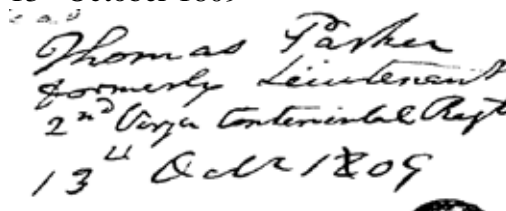 Thomas Parker
formerly Lieutenant
2nd Virga Continental Regt
13th Octr 1809